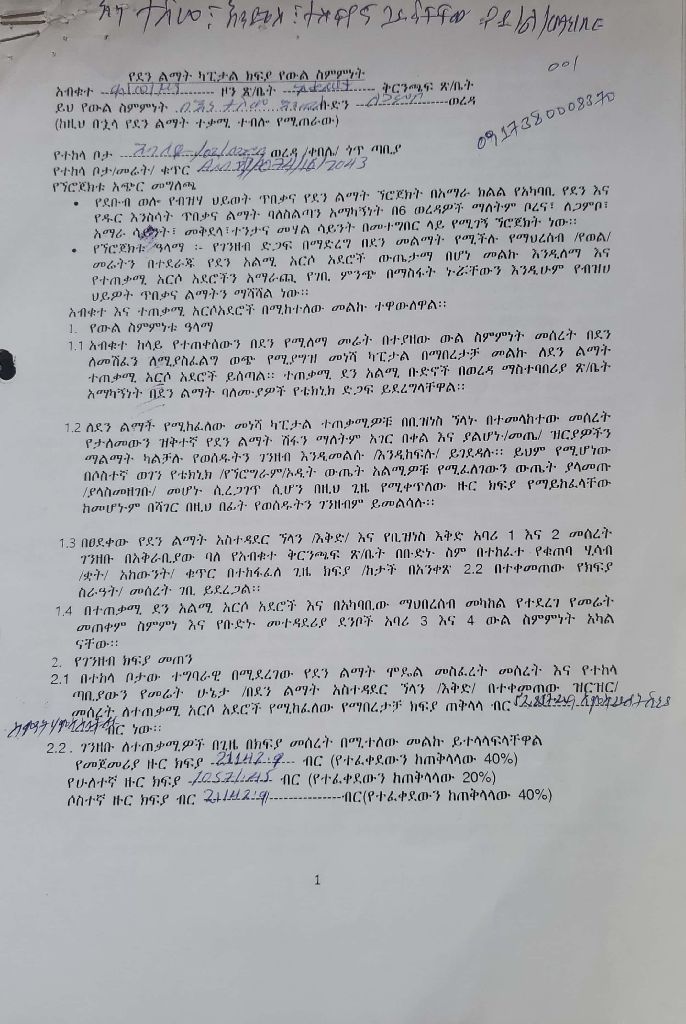 001
0917380008370
የደን ልማት ካፒታል ክፍያ የውል ስምምነት
አብቁተ ዞን ጽ/ቤት ቅርንጫፍ ጽ/ቤት
ይህ የውል ስምምነት ቡድን ወረዳ
(ከዚህ በኋላ የደን ልማት ተቃሚ ተብሎ የሚጠራው)
የተከላ ቦታ ወረዳ /ቀበሌ/ ጎጥ ጣቢያ
የተከላ ቦታ/መሬት/ ቁጥር
የኘሮጀክቱ አጭር መግለጫ
• የደቡብ ወሎ የብዝሃ ህይወት ጥበቃና የደን ልማት ኘሮጀክት በአማራ ክልል የአካባቢ የደን እና
የዱር እንስሳት ጥበቃና ልማት ባለስልጣን አማካኝነት በ6 ወረዳዎች ማለትም ቦረና፣ ለጋምቦ፣
አማራ ሳይንት፣ መቅደላ፣ተንታና መሃል ሳይንት በመተግበር ላይ የሚገኝ ኘሮጀክት ነው፡፡
• የኘሮጀክቱ ዓላማ ፡- የገንዘብ ድጋፍ በማድረግ በደን መልማት የሚችሉ የማህረሰብ /የወል/
መሬትን በተደራጁ የደን አልሚ አርሶ አደሮች ውጤታማ በሆነ መልኩ እንዲለማ እና
የተጠቃሚ አርሶ አደሮችን አማራጪ የገቢ ምንጭ በማስፋት ኑሯቸውን እንዲሁም የብዝሀ
ህይዎት ጥበቃና ልማትን ማሻሻል ነው፡፡
አብቁተ እና ተጠቃሚ አርሶአደሮች በሚከተለው መልኩ ተዋውለዋል፡፡
1. የውል ስምምነቱ ዓላማ
1.1 አብቁተ ከላይ የተጠቀሰውን በደን የሚለማ መሬት በተያዘው ውል ስምምነት መሰረት በደን
ለመሸፈን ለሚያስፈልግ ወጭ የሚያግዝ መነሻ ካፒታል በማበረታቻ መልኩ ለደን ልማት
ተጠቃሚ አርሶ አደሮች ይሰጣል፡፡ ተጠቃሚ ደን አልሚ ቡድኖች በወረዳ ማስተባበሪያ ጽ/ቤት
አማካኝነት በደን ልማት ባለሙያዎች የቴክኒክ ድጋፍ ይደረግላቸዋል፡፡
1.2 ለደን ልማቱ የሚከፈለው መነሻ ካፒታል ተጠቃሚዎቹ በቢዝነስ ኘላኑ በተመላከተው መሰረት
የታለመውን ዝቅተኛ የደን ልማት ሽፋን ማለትም አገር በቀል እና ያልሆኑ/መጤ/ ዝርያዎችን
ማልማት ካልቻሉ የወሰዱትን ገንዘብ እንዲመልሱ /እንዲከፍሉ/ ይገደዳሉ፡፡ ይህም የሚሆነው
በሶስተኛ ወገን የቴክኒክ /የኘሮግራም/ኦዲት ውጤት አልሚዎቹ የሚፈለገውን ውጤት ያላመጡ
/ያላስመዘገቡ/ መሆኑ ሲረጋገጥ ሲሆን በዚህ ጊዜ የሚቀጥለው ዙር ክፍያ የማይከፈላቸው
ከመሆኑም በሻገር በዚህ በፊት የወሰዱትን ገንዘብም ይመልሳሉ፡፡
1.3 በፀደቀው የደን ልማት አስተዳደር ኘላን /እቅድ/ እና የቢዝነስ እቅድ አባሪ 1 እና 2 መሰረት
ገንዘቡ በአቅራቢያው ባለ የአብቁተ ቅርንጫፍ ጽ/ቤት በቡድኑ ስም በተከፈተ የቁጠባ ሂሳብ
/ቋት/ አካውንት/ ቁጥር በተከፋፈለ ጊዜ ክፍያ /ከታች በአንቀጽ 2.2 በተቀመጠው የክፍያ
ስራዓት/ መሰረት ገቢ ይደረጋል፡፡
1.4 በተጠቃሚ ደን አልሚ አርሶ አደሮች እና በአካባቢው ማህበረሰብ መካከል የተደረገ የመሬት
መጠቀም ስምምነ እና የቡድኑ መተዳደሪያ ደንቦች አባሪ 3 እና 4 ውል ስምምነት አካል
ናቸው፡፡
2. የገንዘብ ክፍያ መጠን
2.1 በተከላ ቦታው ተግባራዊ በሚደረገው የደን ልማት ሞዴል መስፈረት መሰረት እና የተከላ
ጣቢያውን የመሬት ሁኔታ /በደን ልማት አስተዳደር ኘላን /እቅድ/ በተቀመጠው ዝርዝር/
መሰረት ለተጠቃሚ አርሶ አደሮች የሚከፈለው የማበረታቻ ክፍያ ጠቅላላ ብር
ብር ነው፡፡
2.2. ገንዘቡ ለተጠቃሚዎች በጊዜ በክፍያ መሰረት በሚተለው መልኩ ይተላላፍላቸዋል
የመጀመሪያ ዙር ክፍያ 21142.9 ብር (የተፈቀደውን ከጠቅላላው 40%)
የሁለተኛ ዙር ክፍያ 10571.45 ብር (የተፈቀደውን ከጠቅላላው 20%)
ሶስተኛ ዙር ክፍያ ብር 21142.9 ብር(የተፈቀደውን ከጠቅላላው 40%)
1